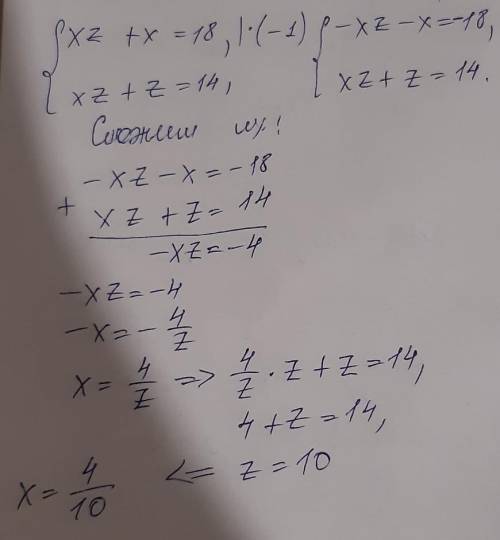 {xz + x = 18, |·(-1) {-xz - x = -18,
{xz + z = 14, {xz + z = 14.
Сложим их!
-xz - x = -18
+ xz + z = 14
-xz = -4
-xz = -4
-x = - 4/z
x = 4/z => 4/z · z + z = 14,
4 + z = 14,
x = 4/10 <= z = 10